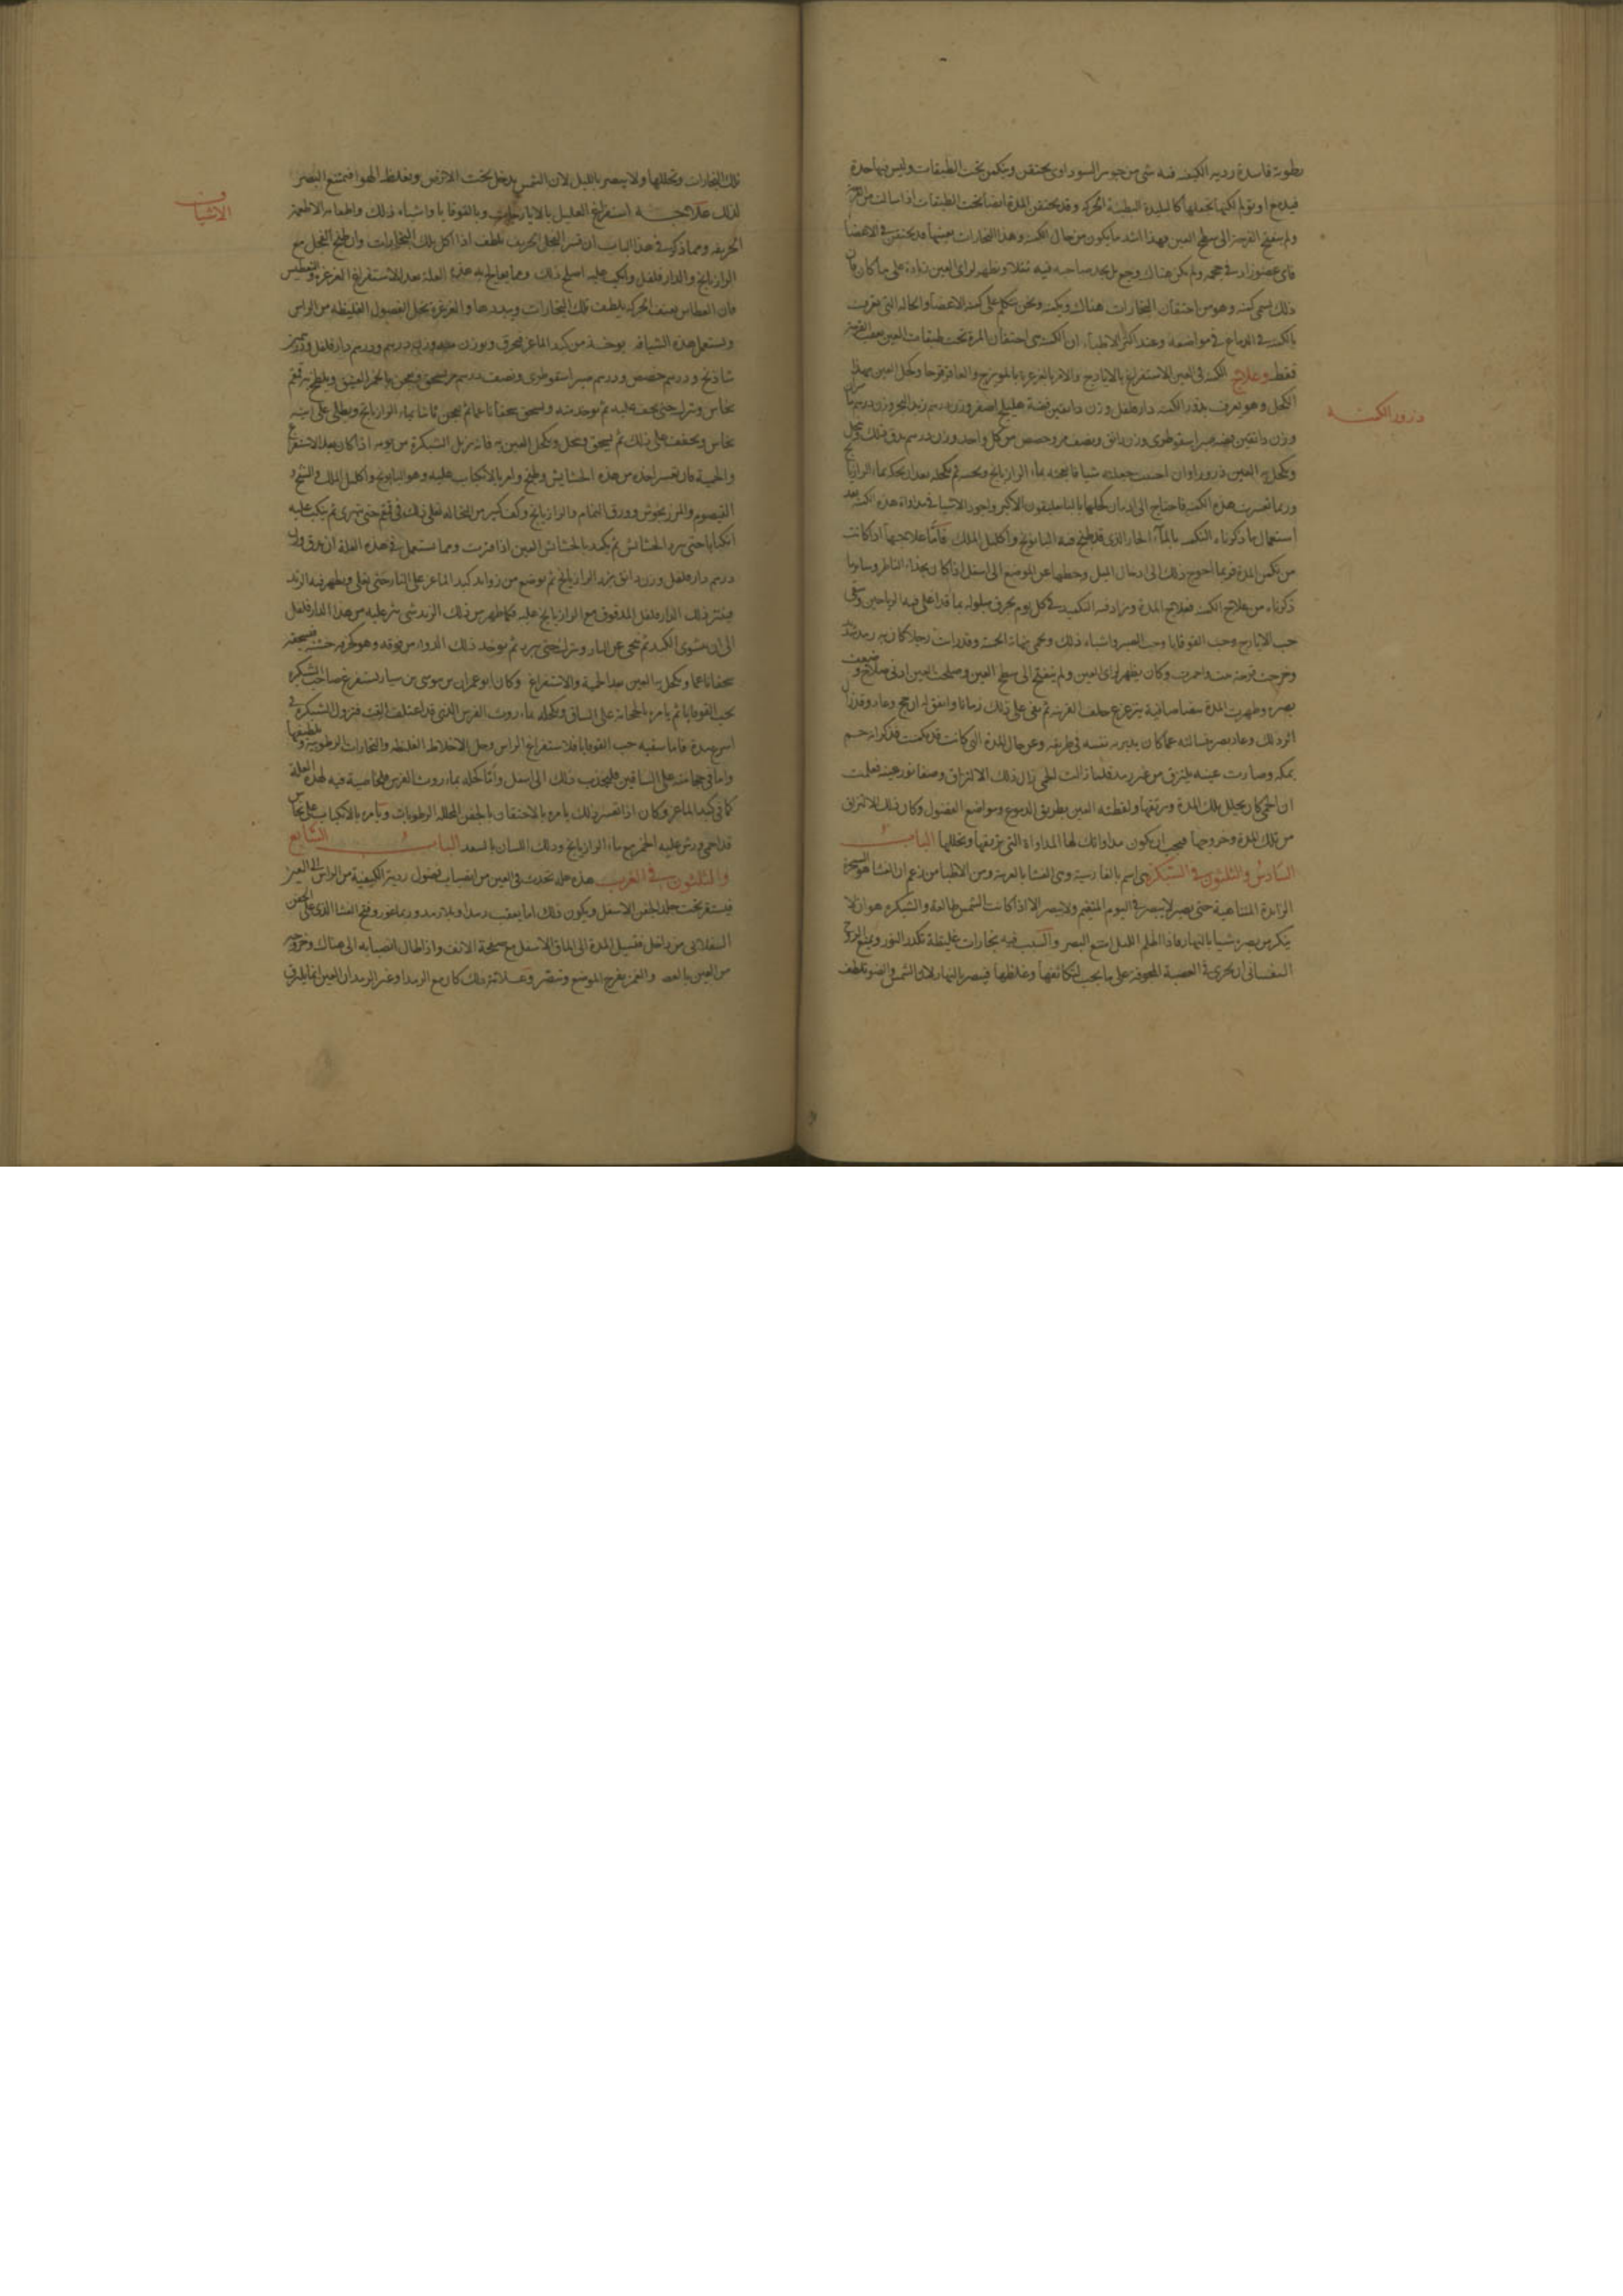 رطوبة فاسدة ردية الكيفية فيه شي من جوهر السوداوى يحتقن ويتكمن تحت الطبقات وليس فيها حدة
ولم ينفتح القرحة الى سطح العين فهذا اشد ما يكون من حال الكمنة وهذا البخارات بعينها قد يحتقن في الاعضا
فاى عضو زاد في حجمه ولم يكن هناك وجع بل يجد صاحبه فيه ثقلا ويظهر لراى العين زيادة على ما كان فان
ذلك يسمى كمنة وهو من احتقان البخارات هناك ونحن نتكلم على كمنة الاعضا والحالة التى يعرف
بالكمنة في الدماغ في مواضعه وعند اكثر الاطبا ان الكمنة هى احتقان المدة تحت طبقات العين بعقب القرحة
فقط وعلاج الكمنة فى العين الاستفراغ بالايارج والامر بالغرغرة بالمويزج والعاقرقرحا وكحل العين بهذا
ذرور الكمنة
الكحل وهو يعرف بذرور الكمنة دارفلفل وزن دانقين فضة هليلج اصفر وزن درهم زبد البحر وزن درهم
وزن دانقين صبر اسقوطرى وزن دانق ونصف مر وحضض من كل واحد وزن درهم يدق ذلك وينخل
ويكحل به العين ذرورا وان احببت جعلته شيافا يعجنه بماء الرازيانج
وربما تعسرت هذه الكمنة فاحتاج الى ان يكحلها بالباسليقون الاكبر واجود الاشيا في مداواة هذه الكمنة بعد
استعمال ما ذكرناه التكميد بالمآء الحار الذى قد طبخ فيه البابونج واكليل الملك فاما علاجها اذا كانت
من تكمن المدة فربما احوج ذلك الى ادخال الميل وحطها عن الموضع الى اسفل اذا كان بحذاء الناظر وساير ما
ذكرناه من علاج الكمنة فعلاج المدة ويزاد فيه التكميد في كل يوم بخرق مبلولة بما قد اغلى فيه الرياحين ويسقى
حب الايارج وحب القوقايا وحب الصبر واشباه ذلك ويحمى نهاية الحمية وقد رايت رجلا كان به رمد شديد
وخرجت قرحة وكان يظهر لراى العين ولم ينفتح الى سطح العين وصلحت العين ادنى صلاح وضعف
بصره وظهرت المدة بيضا صافية يترعرع خلف القرنية ثم بقى على ذلك زمانا واتفق له ان حج وعاد وقد زال
اثر ذلك وعاد بصره فسالته عما كان يدبر به نفسه فى طريقه وعن حال المدة التى كانت قد تكمنت فذكر انه حم
بمكة وصارت عينه يلتزق من غير رمد فلما زالت الحمى زال ذلك الالتزاق وصفا نور عينه فعلمت
ان الحمى كان يحلل تلك المدة ويرققها ولفظته العين بطريق الدموع ومواضع الفضول وكان ذلك الالتزاق
من تلك المدة وخروجها فيجب ان يكون مداواتك لها المداواة التى يرققها ويحللها الباب
السادس والثلثون في الشبكرة هى اسم بالفارسية وهى العشا بالعربية ومن الاطبا من زعم ان العشا هو
الزايدة المتناهية حتى يصير لا يبصر في اليوم المتغيم ولا يبصر الا اذا كانت الشمس طالعة والشبكرة هو ان لا
ينكر من بصره شيا بالنهار فاذا اظلم الليل امتنع البصر والسبب فيه بخارات غليظة تكدر النور ويمنع الروح
النفسانى ان يجرى في العصبة المجوفة على ما يجب لتكاثفها وغلظها فيبصر بالنهار لان الشمس والضو تلطف
تلك البخارات وتحللها ولا يبصر بالليل لان الشمس يدخل تحت الارض ويغلظ الهوا فيمتنع البصر
الاشياف
لذلك علاجه استفراغ العليل بالايارجات وبالقوقايا واشباه ذلك واطعامه الاطعمة
الحريفة ومما ذكر في هذا الباب ان قشر الفجل الحريف يلطف اذا اكل تلك البخارات وان طبخ الفجل مع
الرازيانج والدارفلفل وانكب عليه اصلح ذلك ومما يعالج به هذه العلة بعد الاستفراغ الغرغرة والتعطيس
فان العطاس بعنف الحركة يلطف تلك البخارات ويبددها والغرغرة يحل الفضول الغليظة من الراس
ويستعمل هذه الشيافة يوخذ من كبد الماعز فيحرق ويوزن منه وزن درهم ودرهم دارفلفل
شاذنج ودرهم حضض ودرهم صبر اسقوطرى ونصف درهم مر يسحق ويعجن بالخمر العتيق ويلطخ به قمقم
نحاس ويترك حتى يجف عليه ثم يوخذ منه ويسحق سحقا ناعما ثم يعجن ثانيا بماء الرازيانج ويطلى على انية
نحاس ويجفف على ذلك ثم يسحق وينخل ويكحل العين به فانه يزيل الشبكرة من يومه اذا كان بعد الاستفراغ
والحمية فان تعسر اخذه من هذه الحشايش وطبخ وامر بالانكباب عليه وهو البابونج واكليل الملك والشيح و
القيصوم والمرزنجوش وورق النمام والرازيانج وكف كبير من النخالة يغلى ذلك في قمقم حتى يتهرى ثم ينكب عليه
انكبابا حتى يبرد الحشائش ثم يكمد بالحشائش العين اذا فترت ومما يستعمل في هذه العلة ان يدق وزن
درهم دارفلفل وزن دانق بزر الرازيانج ثم يوضع من زوايد كبد الماعز على النار حتى يغلى ويظهر فيه الزبد
فينثر ذلك الدارفلفل المدقوق مع الرازيانج عليه فكلما ظهر من ذلك الزبد شى نثر عليه من هذا الدارفلفل
الى ان يشوى الكبد ثم ينحى عن النار ويترك حتى يبرد ثم يوخذ ذلك الدواء من فوقه
سحقا ناعما ويكحل به العين بعد الحمية والاستفراغ وكان ابو عمران بن موسى بن سيار يستفرغ صاحب الشبكرة
بحب القوقايا ثم يامره بالحجامة على الساق ويكحله بماء روث الفرس الذى قد اعتلف القت فتزول الشبكرة في
اسرع مدة فاما سقيه حب القوقايا فلاستفراغ الراس وحل الاخلاط الغليظة والبخارات الرطوبية وتلطيفها
واما فى حجامته على الساقين فليجذب ذلك الى اسفل واما كحله بماء روث الفرس فلخاصية فيه لهذه العلة
كما فى كبد الماعز وكان اذا تعسر ذلك يامره بالاحتقان بالحقن المحللة الرطوبات ويامره بالانكباب على نحاس
قد احمى ورش عليه الخمر مع ماء الرازيانج ودلك اللسان بالسعد الباب السابع
والثلثون في الغرب هذه علة تحدث فى العين من انصباب فضول ردية الكيفية من الراس الى العين
فيستقر تحت جلد الجفن الاسفل ويكون ذلك اما بعقب رمد او بلا رمد
السفلانى من داخل فتسيل المدة الى الماق الاسفل مع صفحة الانف واذا طال انصبابه الى هناك وخروجه
من العين والغمز يقرح الموضع وتنصر وعلامة ذلك كان مع الرمد او غير الرمد ان العين